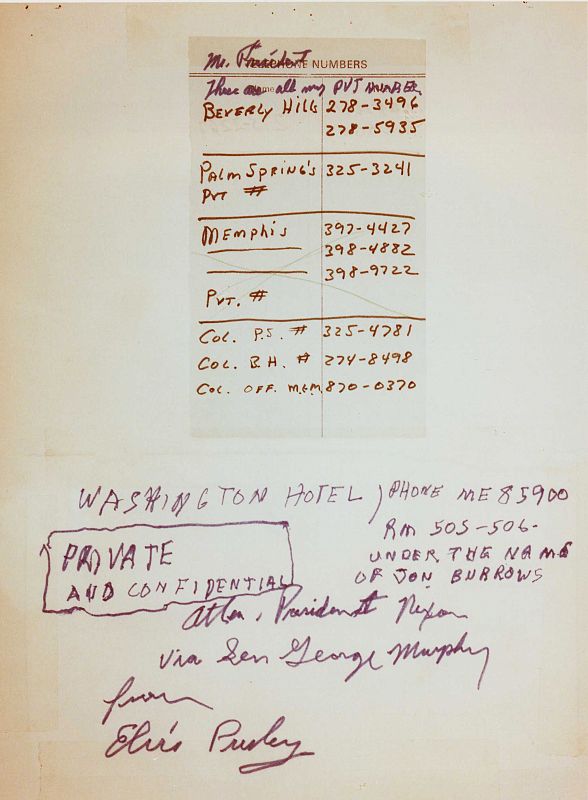 Mr. President
TELEPHONE NUMBERS
These are all my PVT NUMBER
BEVERLY Hills 278-3496
278-5935
PALM SPRING'S 325-3241
PVT #
MEMPHIS 397-4427
398-4882
398-9722
PVT. #
COL. P.S. # 325-4781
COL. B.H. # 274-8498
COL. OFF. MEM 870-0370
WASHINGTON HOTEL) PHONE ME 85900
RM 505-506-
UNDER THE NAME
OF JON BURROWS
PRIVATE
AND CONFIDENTIAL
Attn. President Nixon
via Sen George Murphy
from
Elvis Presley